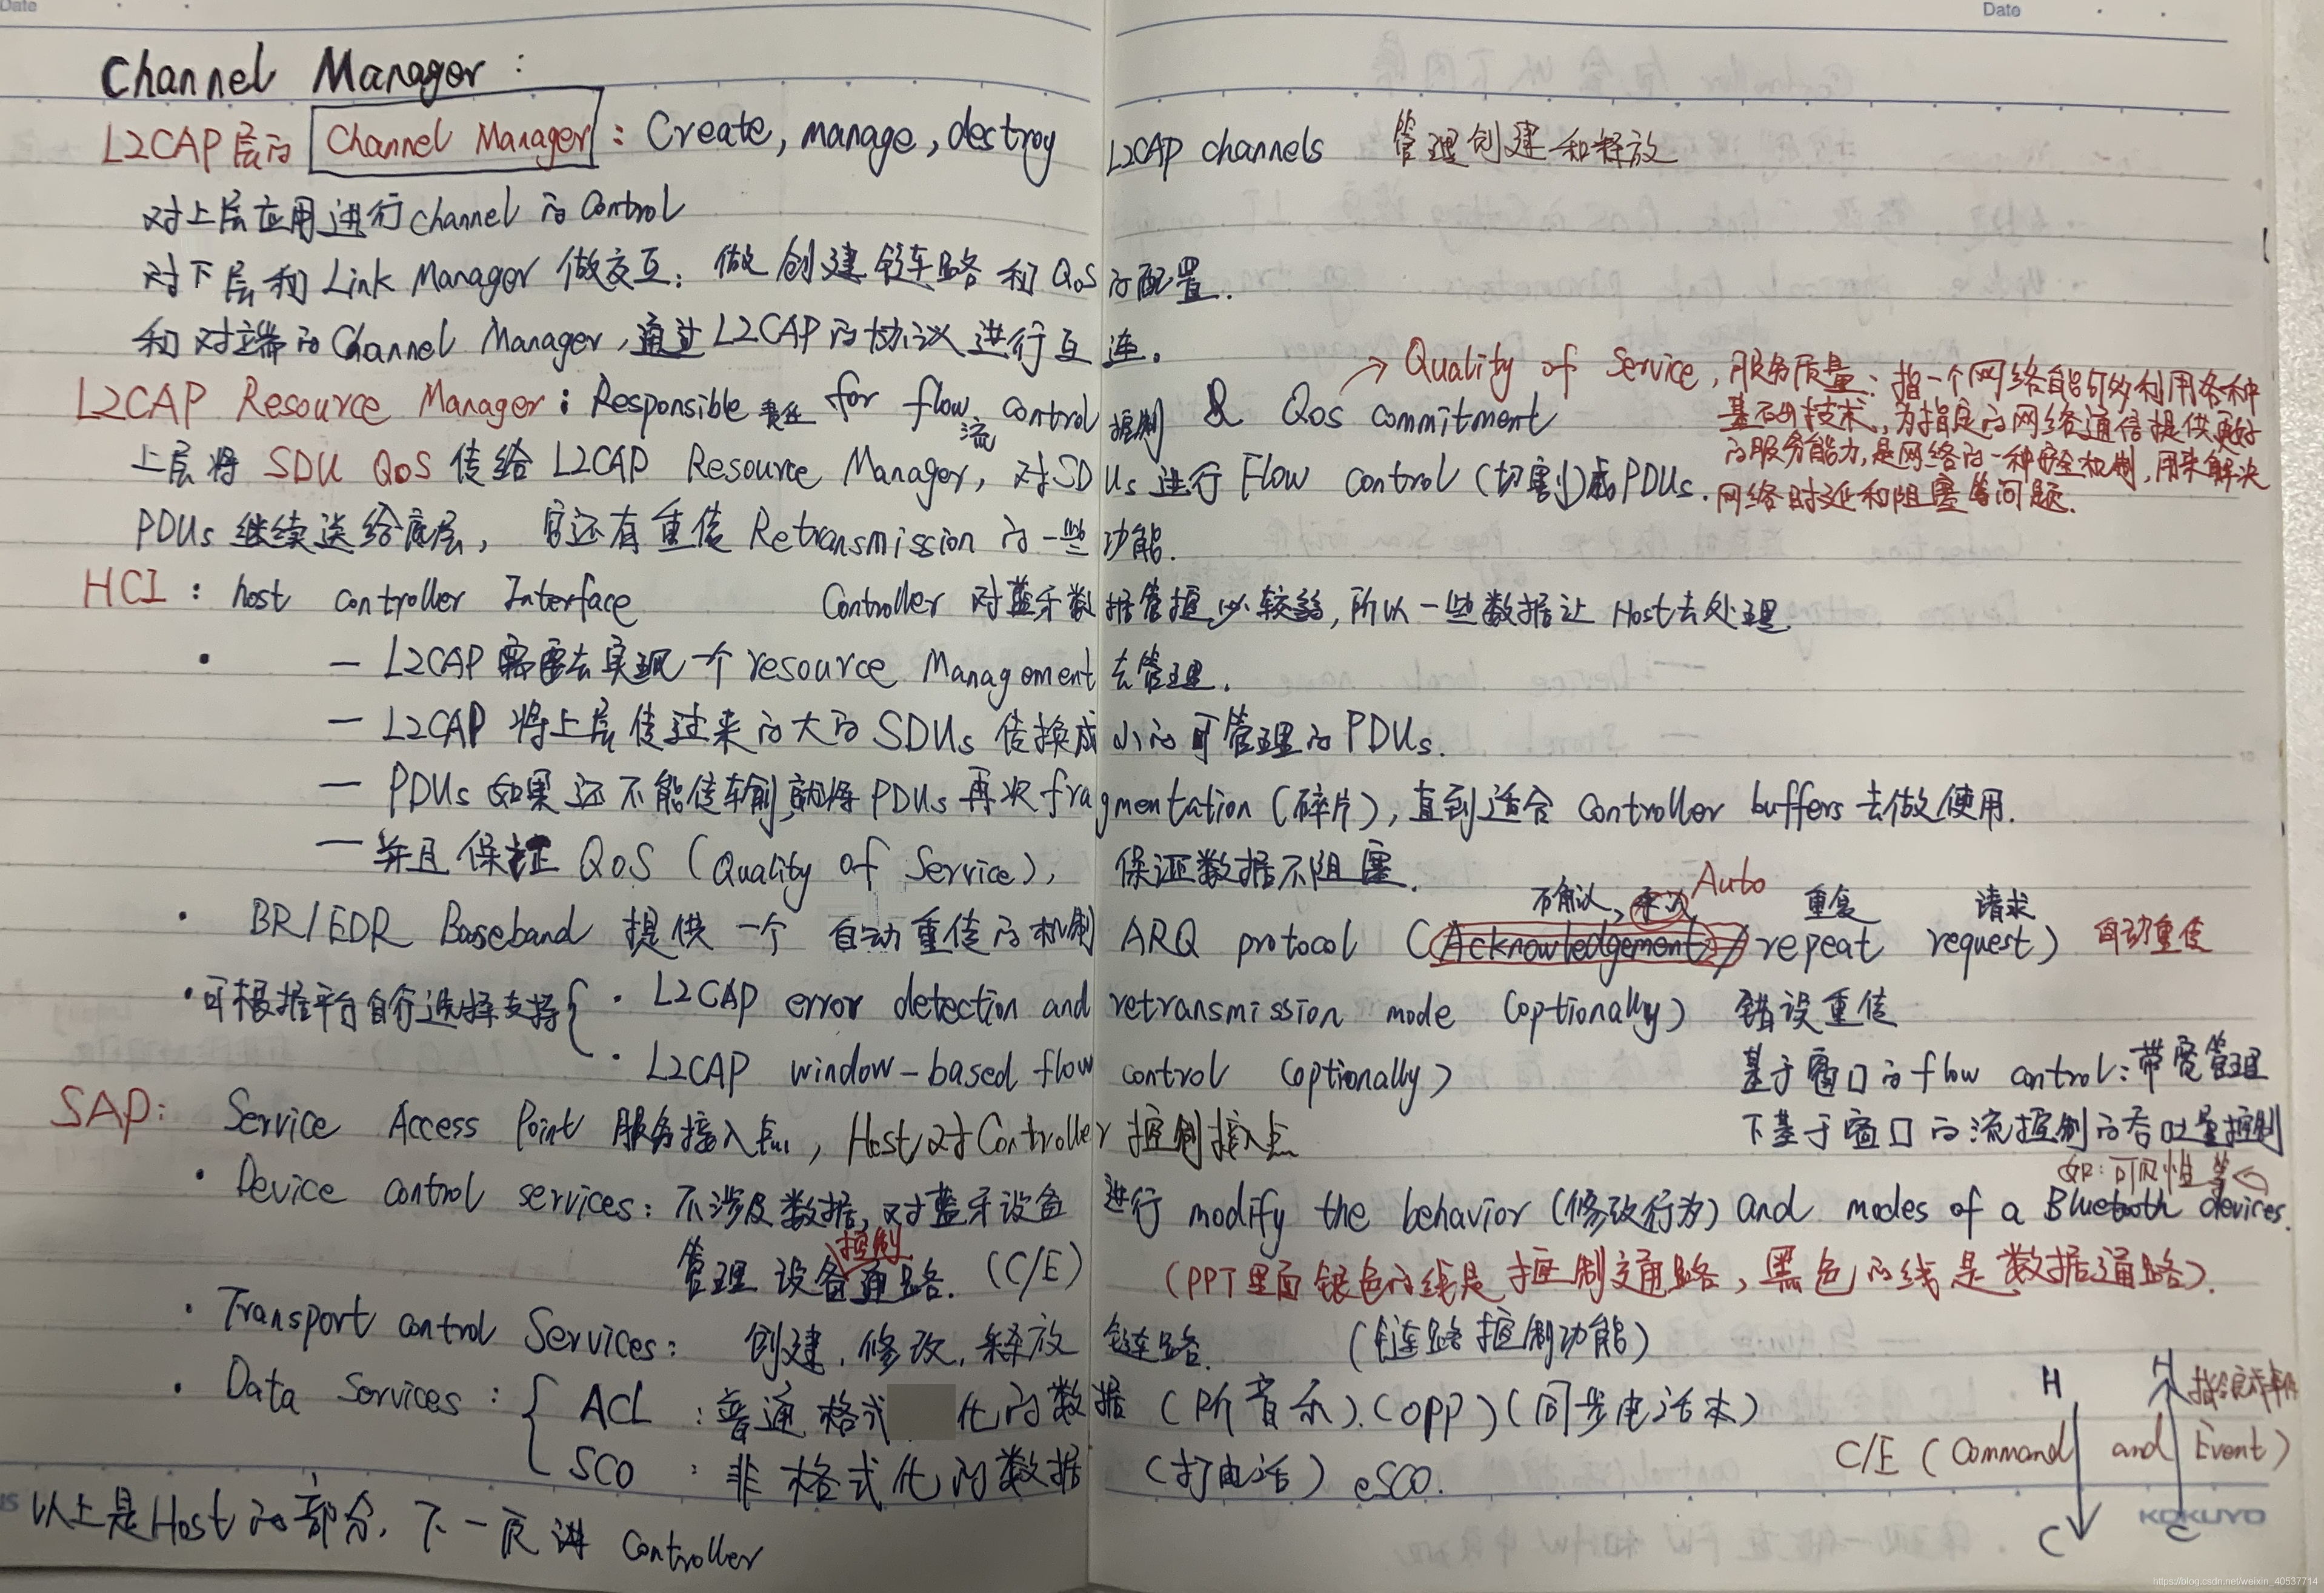 Date
Date
Channel Manager :
L2CAP层的 Channel Manager : Create, manage, destroy L2CAP channels 管理创建和释放
对上层应用进行channel 的 Control
对下层和 Link Manager 做交互: 做创建链路和QoS的配置.
和对端的Channel Manager, 通过L2CAP的协议进行互连。
→ Quality of Service, 服务质量: 指一个网络能够利用各种
L2CAP Resource Manager : Responsible 责任 for flow 流 control 控制 & Qos commitment
基础技术, 为指定的网络通信提供更好
上层将 SDU QoS 传给 L2CAP Resource Manager, 对SDUs 进行 Flow control (切割)成PDUs.
的服务能力, 是网络的一种安全机制, 用来解决
网络时延和阻塞等问题.
PDUs 继续送给底层, 它还有重传 Retransmission 的一些功能.
HCI : host controller Interface Controller 对蓝牙数据管控少较弱, 所以一些数据让 Host去处理.
· — L2CAP 需要去实现一个 resource Management 去管理.
— L2CAP 将上层传过来的大的 SDUs 传换成小的可管理的 PDUs.
— PDUs 如果还不能传输, 就将 PDUs 再次 fragmentation (碎片), 直到适合 Controller buffers 去做使用.
— 并且保证 QoS (Quality of Service), 保证数据不阻塞.
不确认, 承认 Auto 重复 请求
· BR/EDR Baseband 提供一个 自动重传的机制 ARQ protocol (Acknowledgement / repeat request) 自动重传
· 可根据平台自行选择支持 { · L2CAP error detection and retransmission mode (optionally) 错误重传
· L2CAP window-based flow control (optionally) 基于窗口的 flow control: 带宽管理
下基于窗口的流控制的吞吐量控制
SAP: Service Access Point 服务接入点, Host对Controller 控制接入点
如: 可见性等
· Device control services: 不涉及数据, 对蓝牙设备进行 modify the behavior (修改行为) and modes of a Bluetooth devices.
管理设备控制通路. (C/E) (PPT里面银色的线是控制通路, 黑色的线是数据通路).
· Transport control Services: 创建, 修改, 释放 链路. (链路控制功能)
· Data Services : { ACL : 普通格式化的数据 (听音乐).(OPP)(同步电话本)
SCO : 非格式化的数据 (打电话) eSCO.
H H
C/E (Command and Event)
C C
KOKUYO
以上是Host的部分, 下一页讲 Controller
https://blog.csdn.net/weixin_40537714